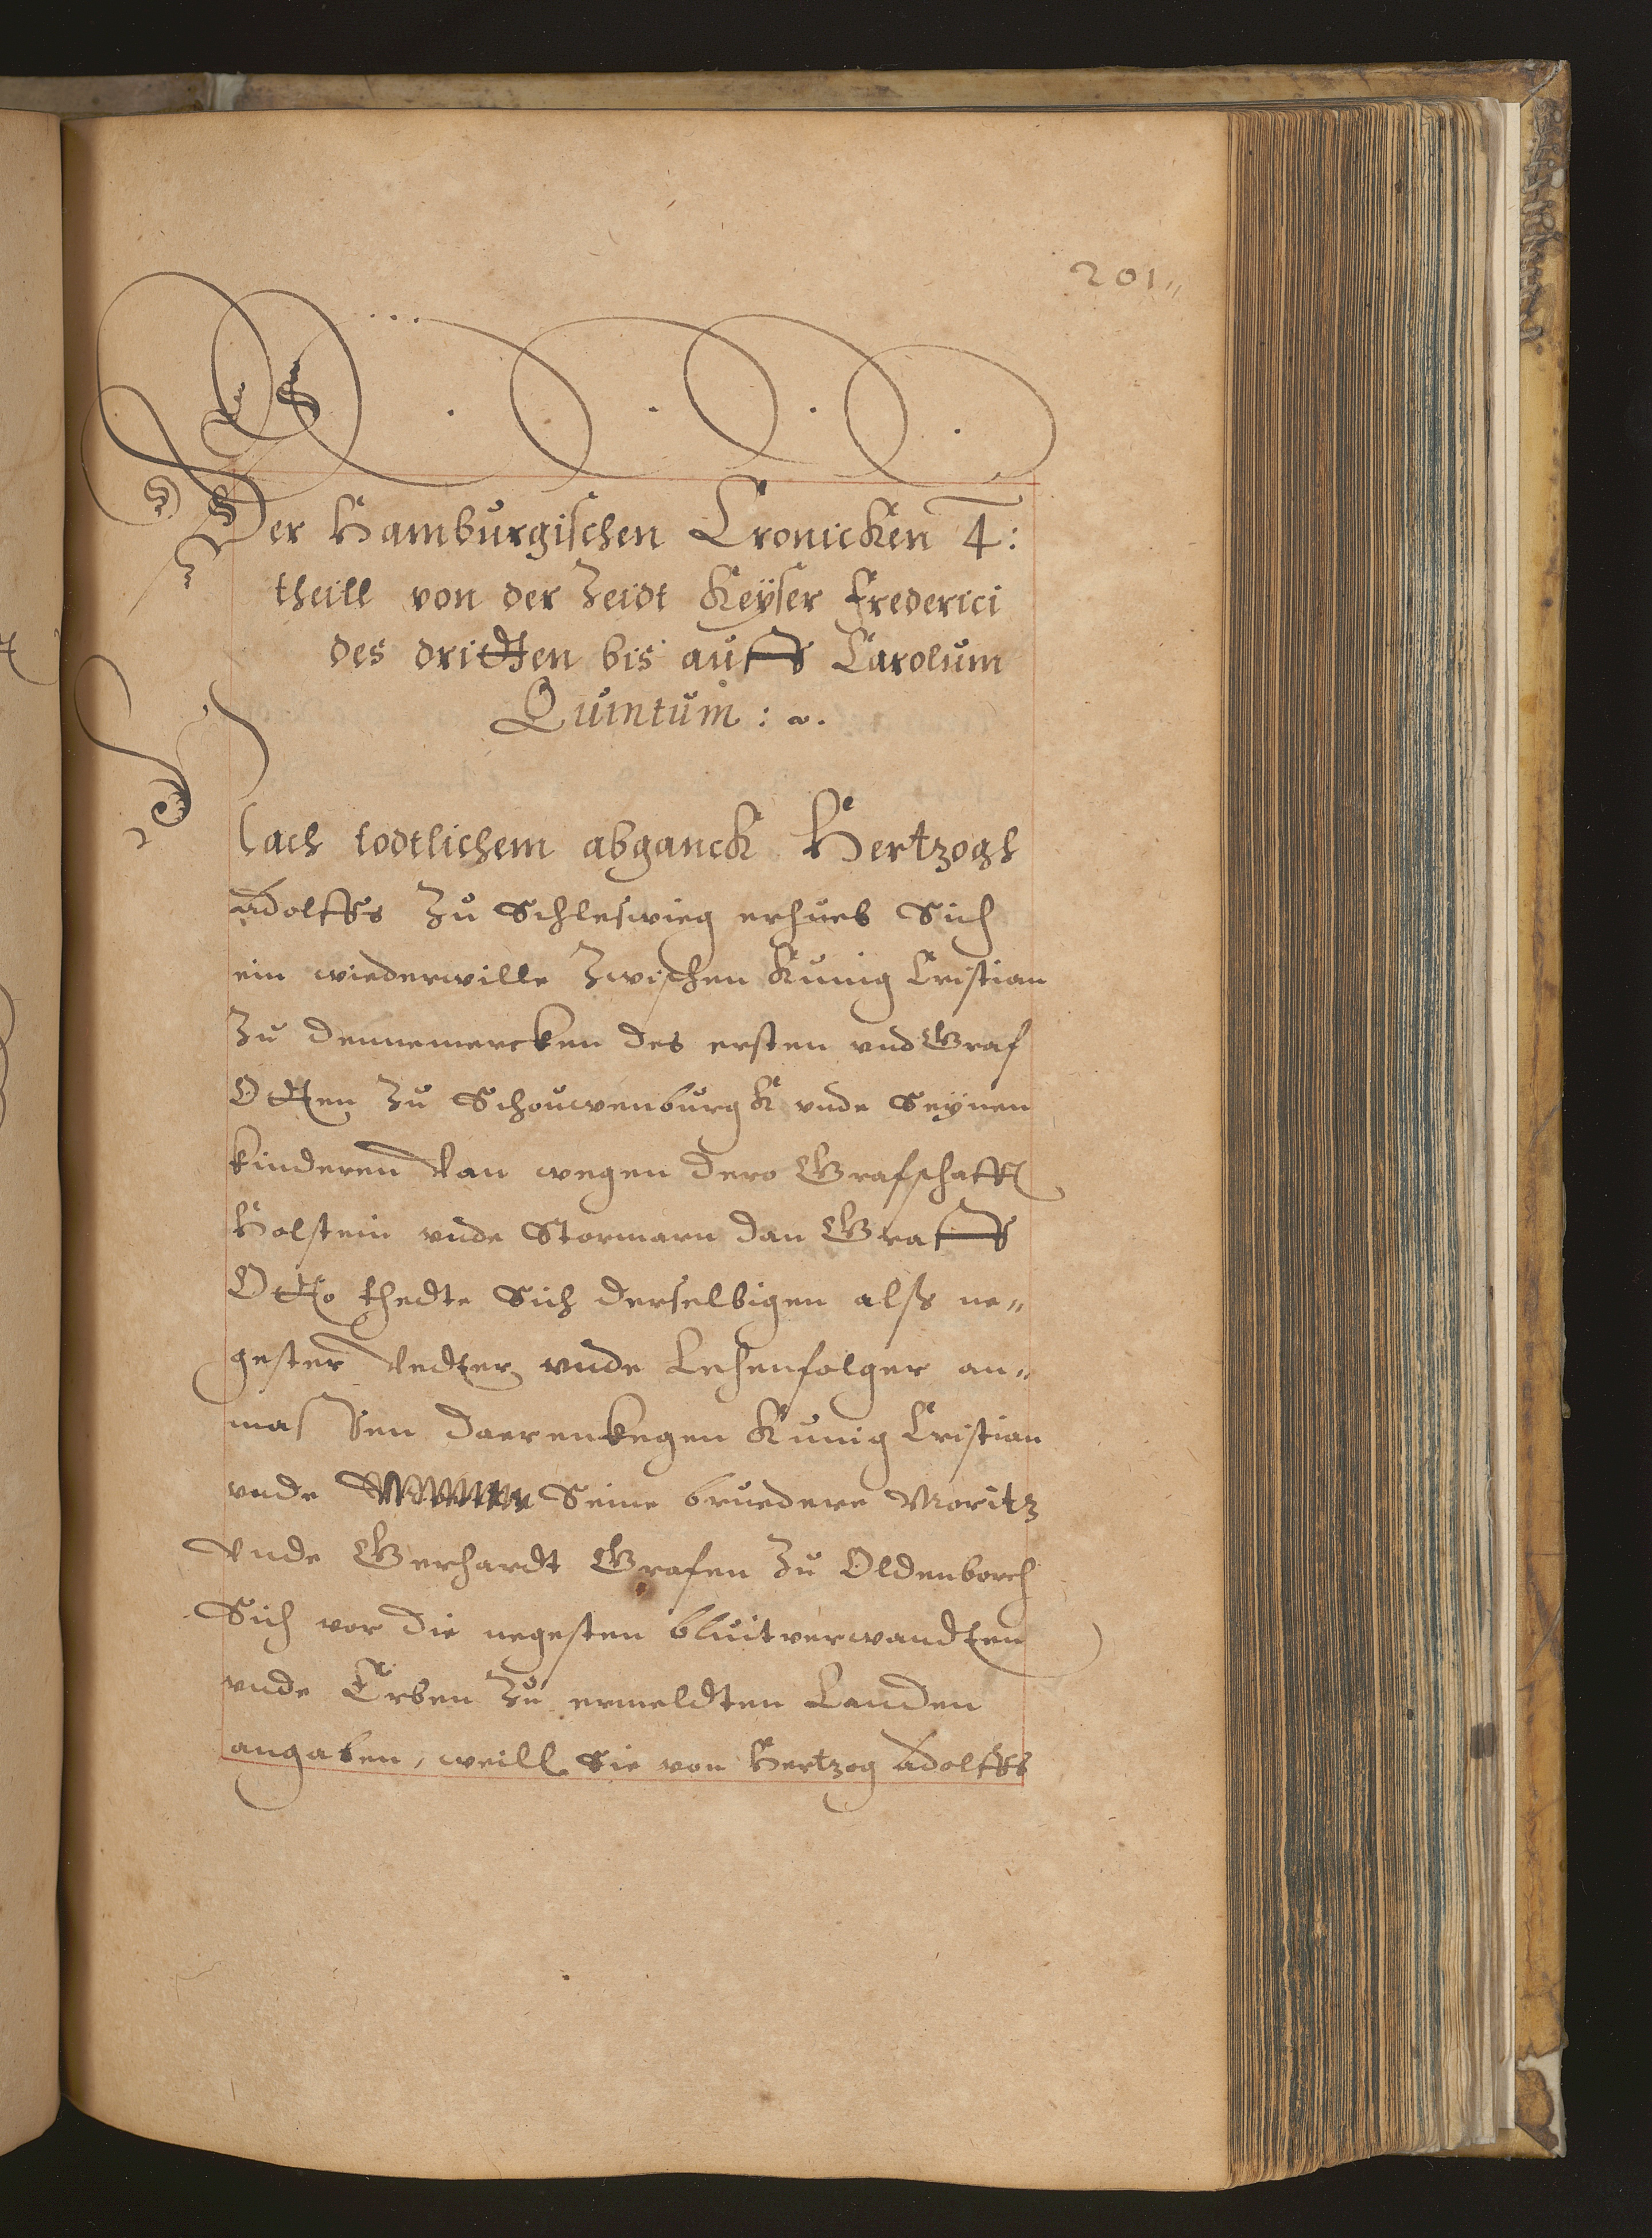 201„
Der Hamburgischen Cronicken 4:
theill von der Zeidt Keÿser Frederici
des dridten bis auff Carolum
Quintum : ~.
Nach todtlichem abganck Hertzogh
Adolffs Zu Schleswieg erhueb Sich
ein wiederwille Zwischen Kunig Cristian
Zu Dennemercken des ersten vnd Graf
Otten Zu Schouwenburgk vnde Seÿnen
kinderen Van wegen dero Grafschafft
Holstein vnde Stormarn dan Graff
Otto thedte Sich derselbigen alss ne„
gester Vedter vnde Lehenfolger an„
massen daerenkegen Kunig Cristian
vnde Seine bruedere Moritz
Vnde Gerhardt Grafen Zu Oldenborch
Sich vor die negesten bluitverwandten
vnde Erben Zu ermeldten Landen
angaben, weill Sie von Hertzog Adolffs